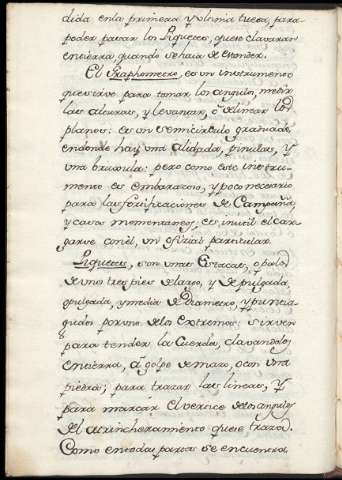 dida enla primera y ultima tuesa, para
poder pasar los Piquetes, quese clavaran
entierra quando se haia de extender.
El Graphometro, es un instrumento
que sirve para tomar los angulos, medir
las alturas, y levantar, ó delinear los
planos: es un semicirculo graduado,
endonde hay una alidada, pinulas, y
una bruxula: pero como este instru-
mento es embarazoso, y poco necesario
para las fortificaciones de Campaña
y casos momentaneos, es inutil el car-
garse con el, un oficial particular.
Piquetes, son unas Estacas, o palos
de uno tres pies de largo, y de pulgada,
o pulgada, y media de Diametro, y puntia-
gudos por uno de los extremos: sirven
para tender la Cuerda, clavandolos
entierra, á golpe de mazo, o con una
piedra; para trazar las lineas, y
para marcar el vertice de los angulos
del atrincheramiento que se traza.
Como en todas partes se encuentra